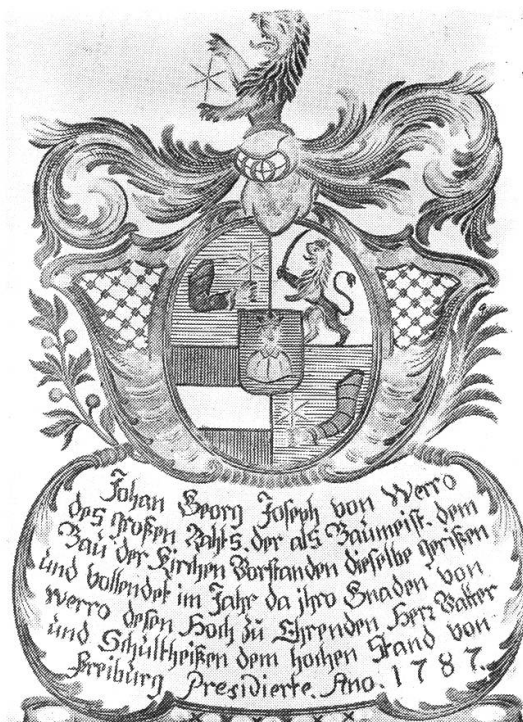 Johan Georg Joseph von Werro
des großen Rahts, der als Baumeist. dem
Bau der Kirchen Vorstanden dieselbe gerißen
und vollendet im Jahr da jhro Gnaden von
Werro desen Hoch zu Ehrenden Herr Vatter
und Schultheißen dem hochen Stand von
Freiburg Presidierte. Ano 1787.